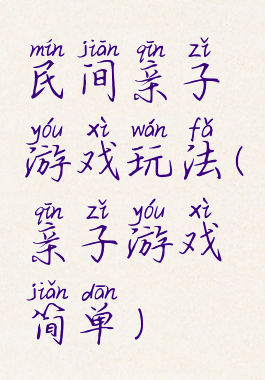 mín jiān qīn zǐ
民间亲子
yóu xì wán fǎ
游戏玩法(
qīn zǐ yóu xì
亲子游戏
jiǎn dān
简单)